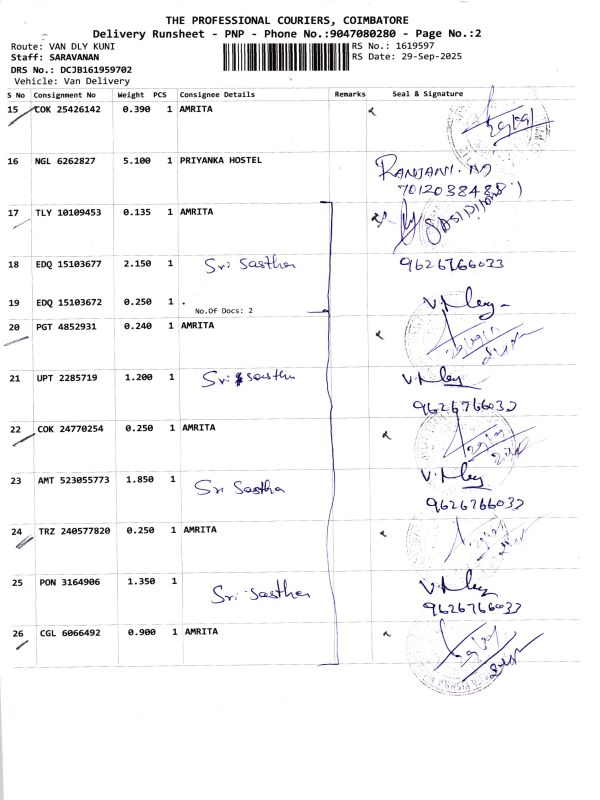 THE PROFESSIONAL COURIERS, COIMBATORE
Delivery Runsheet - PNP - Phone No.:9047080280 - Page No.:2
Route: VAN DLY KUNI RS No.: 1619597
Staff: SARAVANAN RS Date: 29-Sep-2025
DRS No.: DCJB161959702
Vehicle: Van Delivery
S No Consignment No Weight PCS Consignee Details Remarks Seal & Signature
15 COK 25426142 0.390 1 AMRITA
16 NGL 6262827 5.100 1 PRIYANKA HOSTEL
RANJANI
7012038488
17 TLY 10109453 0.135 1 AMRITA
18 EDQ 15103677 2.150 1 Sri Sastha 9626766033
19 EDQ 15103672 0.250 1 .
No.Of Docs: 2
20 PGT 4852931 0.240 1 AMRITA
21 UPT 2285719 1.200 1 Sri Sastha
9626766033
22 COK 24770254 0.250 1 AMRITA
23 AMT 523055773 1.850 1 Sri Sastha
9626766033
24 TRZ 240577820 0.250 1 AMRITA
25 PON 3164906 1.350 1 Sri Sastha
9626766033
26 CGL 6066492 0.900 1 AMRITA